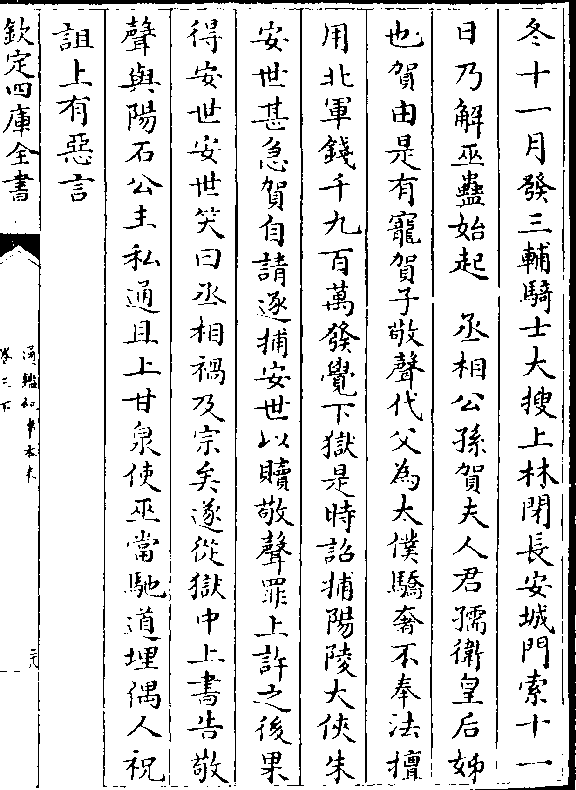 冬十一月發三輔騎士大搜上林閉長安城門索十一
日乃解巫蠱始起　丞相公孫賀夫人君孺衛皇后姊
也賀由是有寵賀子敬聲代父為太僕驕奢不奉法擅
用北軍錢千九百萬發覺下獄是時詔捕陽陵大俠朱
安世甚急賀自請逐捕安世以贖敬聲罪上許之後果
得安世安世笑曰丞相禍及宗矣遂從獄中上書告敬
聲與陽石公主私通且上甘泉使巫當馳道埋偶人祝
詛上有惡言
欽定四庫全書
通鑑紀事本末
卷三下